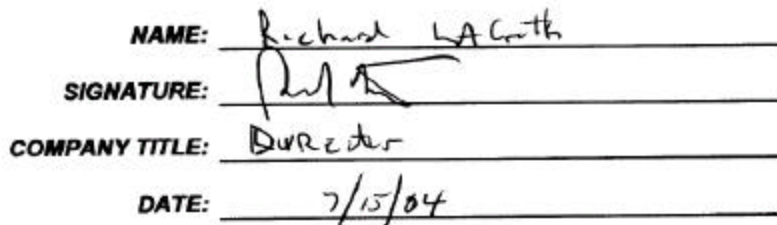 NAME: Richard
SIGNATURE:
COMPANY TITLE: Director
DATE: 7/15/04